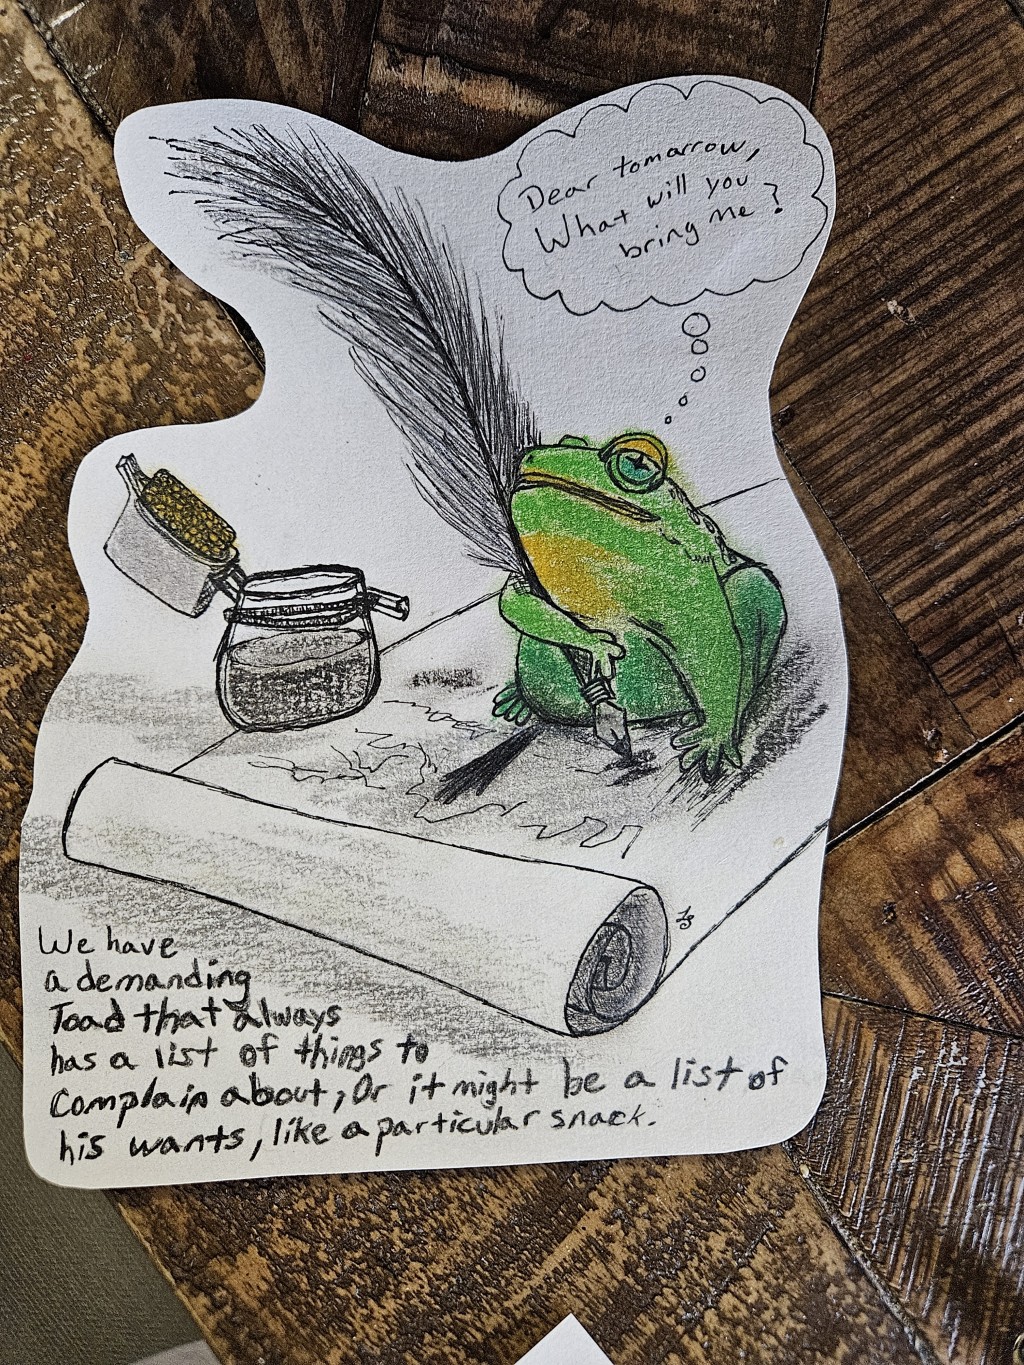 Dear tomorrow,
What will you
bring me?
We have
a demanding
Toad that always
has a list of things to
Complain about, Or it might be a list of
his wants, like a particular snack.